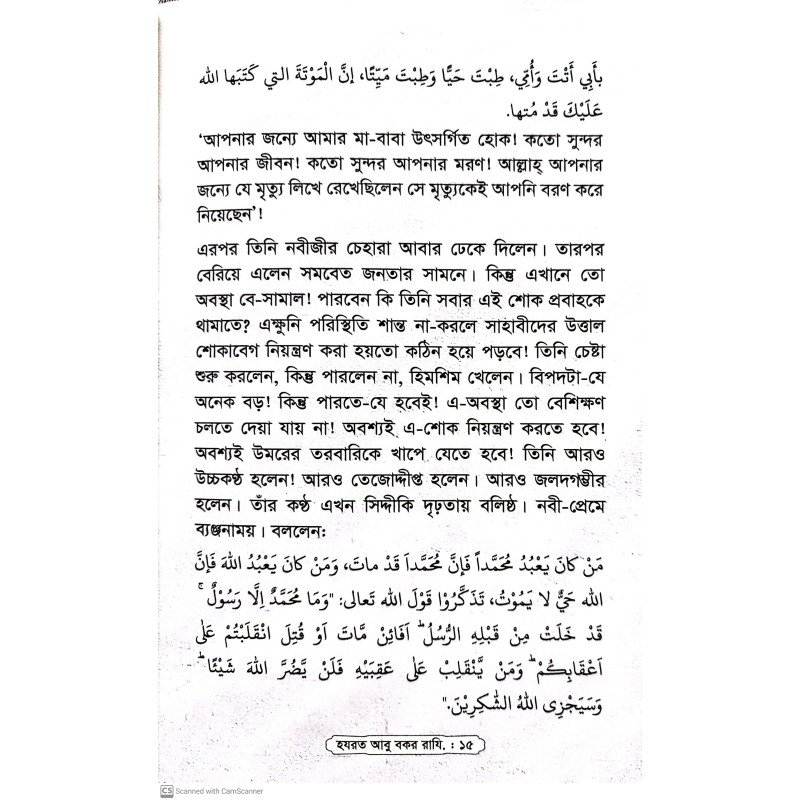 بِأَبِي أَنْتَ وَأُمِّي، طِبْتَ حَيًّا وَطِبْتَ مَيِّتًا، إِنَّ الْمَوْتَةَ التي كَتَبَها الله
عَلَيْكَ قَدْ مُتها.
‘আপনার জন্যে আমার মা-বাবা উৎসর্গিত হোক! কতো সুন্দর
আপনার জীবন! কতো সুন্দর আপনার মরণ! আল্লাহ্ আপনার
জন্যে যে মৃত্যু লিখে রেখেছিলেন সে মৃত্যুকেই আপনি বরণ করে
নিয়েছেন’!
এরপর তিনি নবীজীর চেহারা আবার ঢেকে দিলেন। তারপর
বেরিয়ে এলেন সমবেত জনতার সামনে। কিন্তু এখানে তো
অবস্থা বে-সামাল! পারবেন কি তিনি সবার এই শোক প্রবাহকে
থামাতে? এক্ষুনি পরিস্থিতি শান্ত না-করলে সাহাবীদের উত্তাল
শোকাবেগ নিয়ন্ত্রণ করা হয়তো কঠিন হয়ে পড়বে! তিনি চেষ্টা
শুরু করলেন, কিন্তু পারলেন না, হিমশিম খেলেন। বিপদটা-যে
অনেক বড়! কিন্তু পারতে-যে হবেই! এ-অবস্থা তো বেশিক্ষণ
চলতে দেয়া যায় না! অবশ্যই এ-শোক নিয়ন্ত্রণ করতে হবে!
অবশ্যই উমরের তরবারিকে খাপে যেতে হবে! তিনি আরও
উচ্চকণ্ঠ হলেন! আরও তেজোদ্দীপ্ত হলেন। আরও জলদগম্ভীর
হলেন। তাঁর কণ্ঠ এখন সিদ্দীকি দৃঢ়তায় বলিষ্ঠ। নবী-প্রেমে
ব্যঞ্জনাময়। বললেন:
مَنْ كَانَ يَعْبُدُ مُحَمَّداً فَإِنَّ مُحَمَّداَ قَدْ ماتَ، وَمَنْ كانَ يَعْبُدُ اللهَ فَإِنَّ
الله حَيٌّ لا يَمُوْتُ، تَذَكَّرُوْا قَوْلَ الله تَعالى: "وَمَا مُحَمَّدٌ اِلَّا رَسُوْلٌ ۚ
قَدْ خَلَتْ مِنْ قَبْلِهِ الرُّسُلُ ؕ اَفَائِنْ مَّاتَ اَوْ قُتِلَ انْقَلَبْتُمْ عَلٰى
اَعْقَابِكُمْ ؕ وَمَنْ يَّنْقَلِبْ عَلٰى عَقِبَيْهِ فَلَنْ يَّضُرَّ اللهَ شَيْئًا ؕ
وَسَيَجْزِى اللهُ الشّٰكِرِيْنَ."
হযরত আবু বকর রাযি. : ১৫
CS Scanned with CamScanner